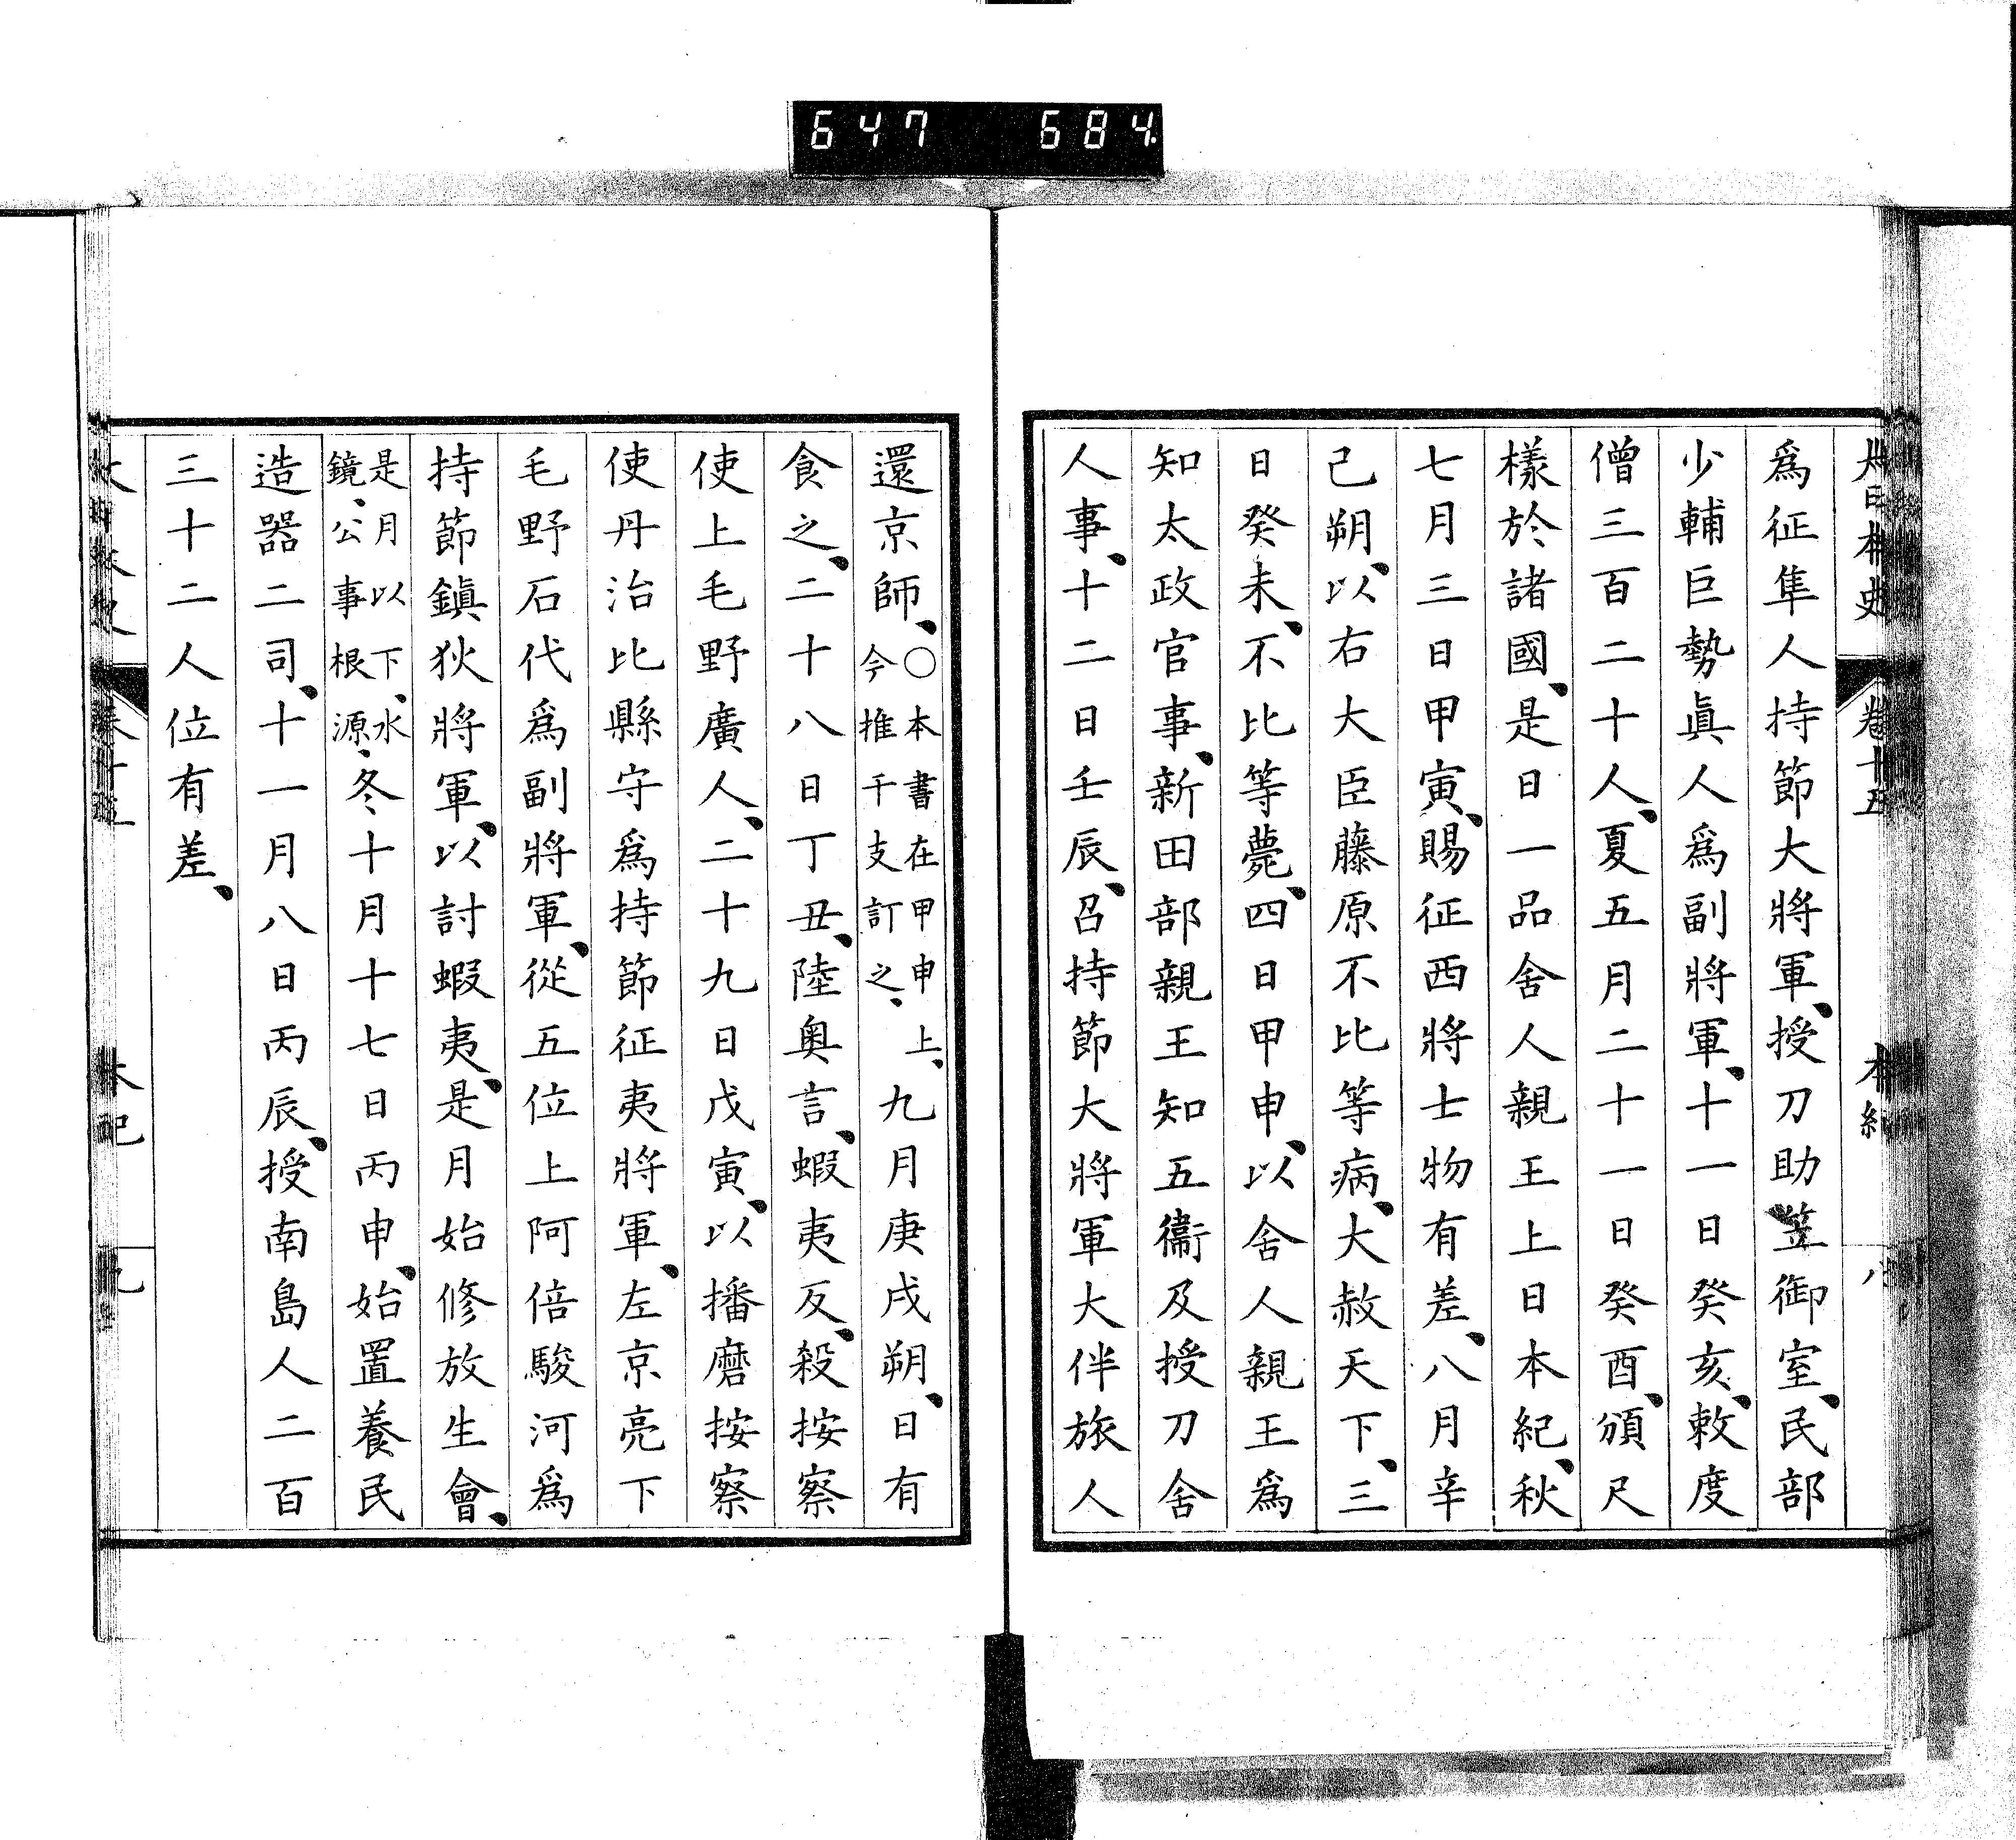 647 684.
大日本史 卷十五 本紀 八
爲征隼人持節大將軍、授刀助笠御室、民部
少輔巨勢眞人爲副將軍、十一日癸亥、敕度
僧三百二十人、夏五月二十一日癸酉、頒尺
樣於諸國、是日一品舍人親王上日本紀、秋
七月三日甲寅、賜征西將士物有差、八月辛
己朔、以右大臣藤原不比等病、大赦天下、三
日癸未、不比等薨、四日甲申、以舍人親王爲
知太政官事、新田部親王知五衞及授刀舍
人事、十二日壬辰、召持節大將軍大伴旅人
還京師、○本書在甲申上、今推干支訂之、九月庚戌朔、日有
食之、二十八日丁丑、陸奥言、蝦夷反、殺按察
使上毛野廣人、二十九日戊寅、以播磨按察
使丹治比縣守爲持節征夷將軍、左京亮下
毛野石代爲副將軍、從五位上阿倍駿河爲
持節鎭狄將軍、以討蝦夷、是月始修放生會、
是月以下、水鏡、公事根源、冬十月十七日丙申、始置養民
造器二司、十一月八日丙辰、授南島人二百
三十二人位有差、
本紀 九